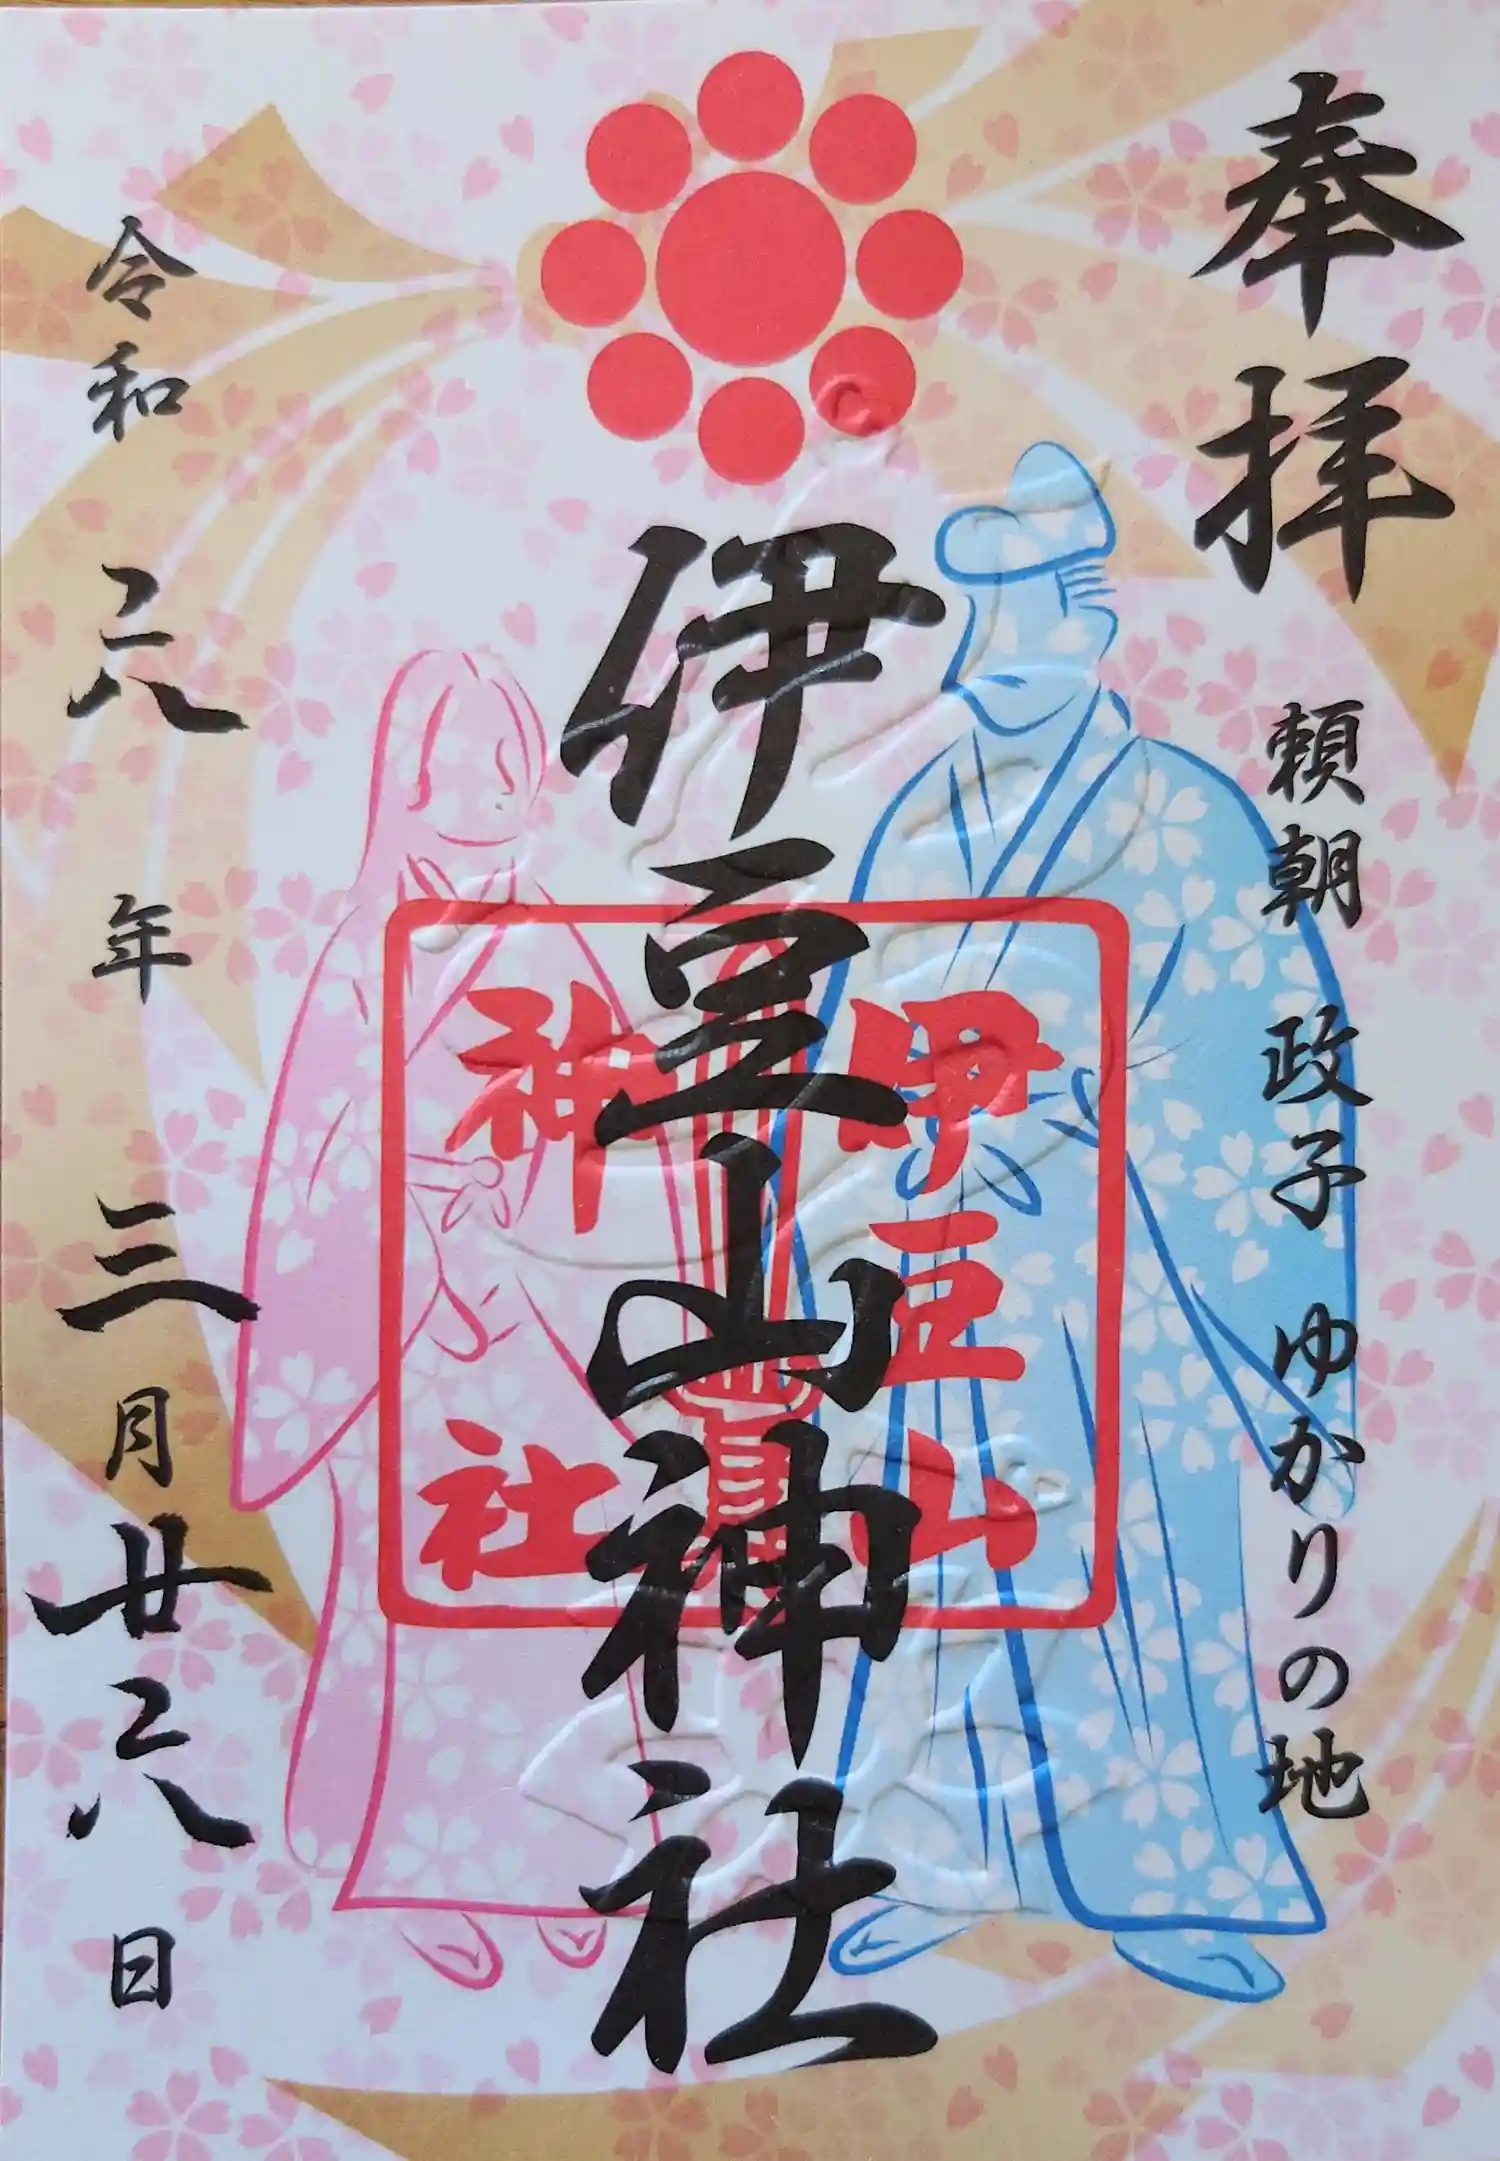 奉拝
頼朝 政子 ゆかりの地
伊豆山神社
伊豆山
神社
令和六年三月廿六日